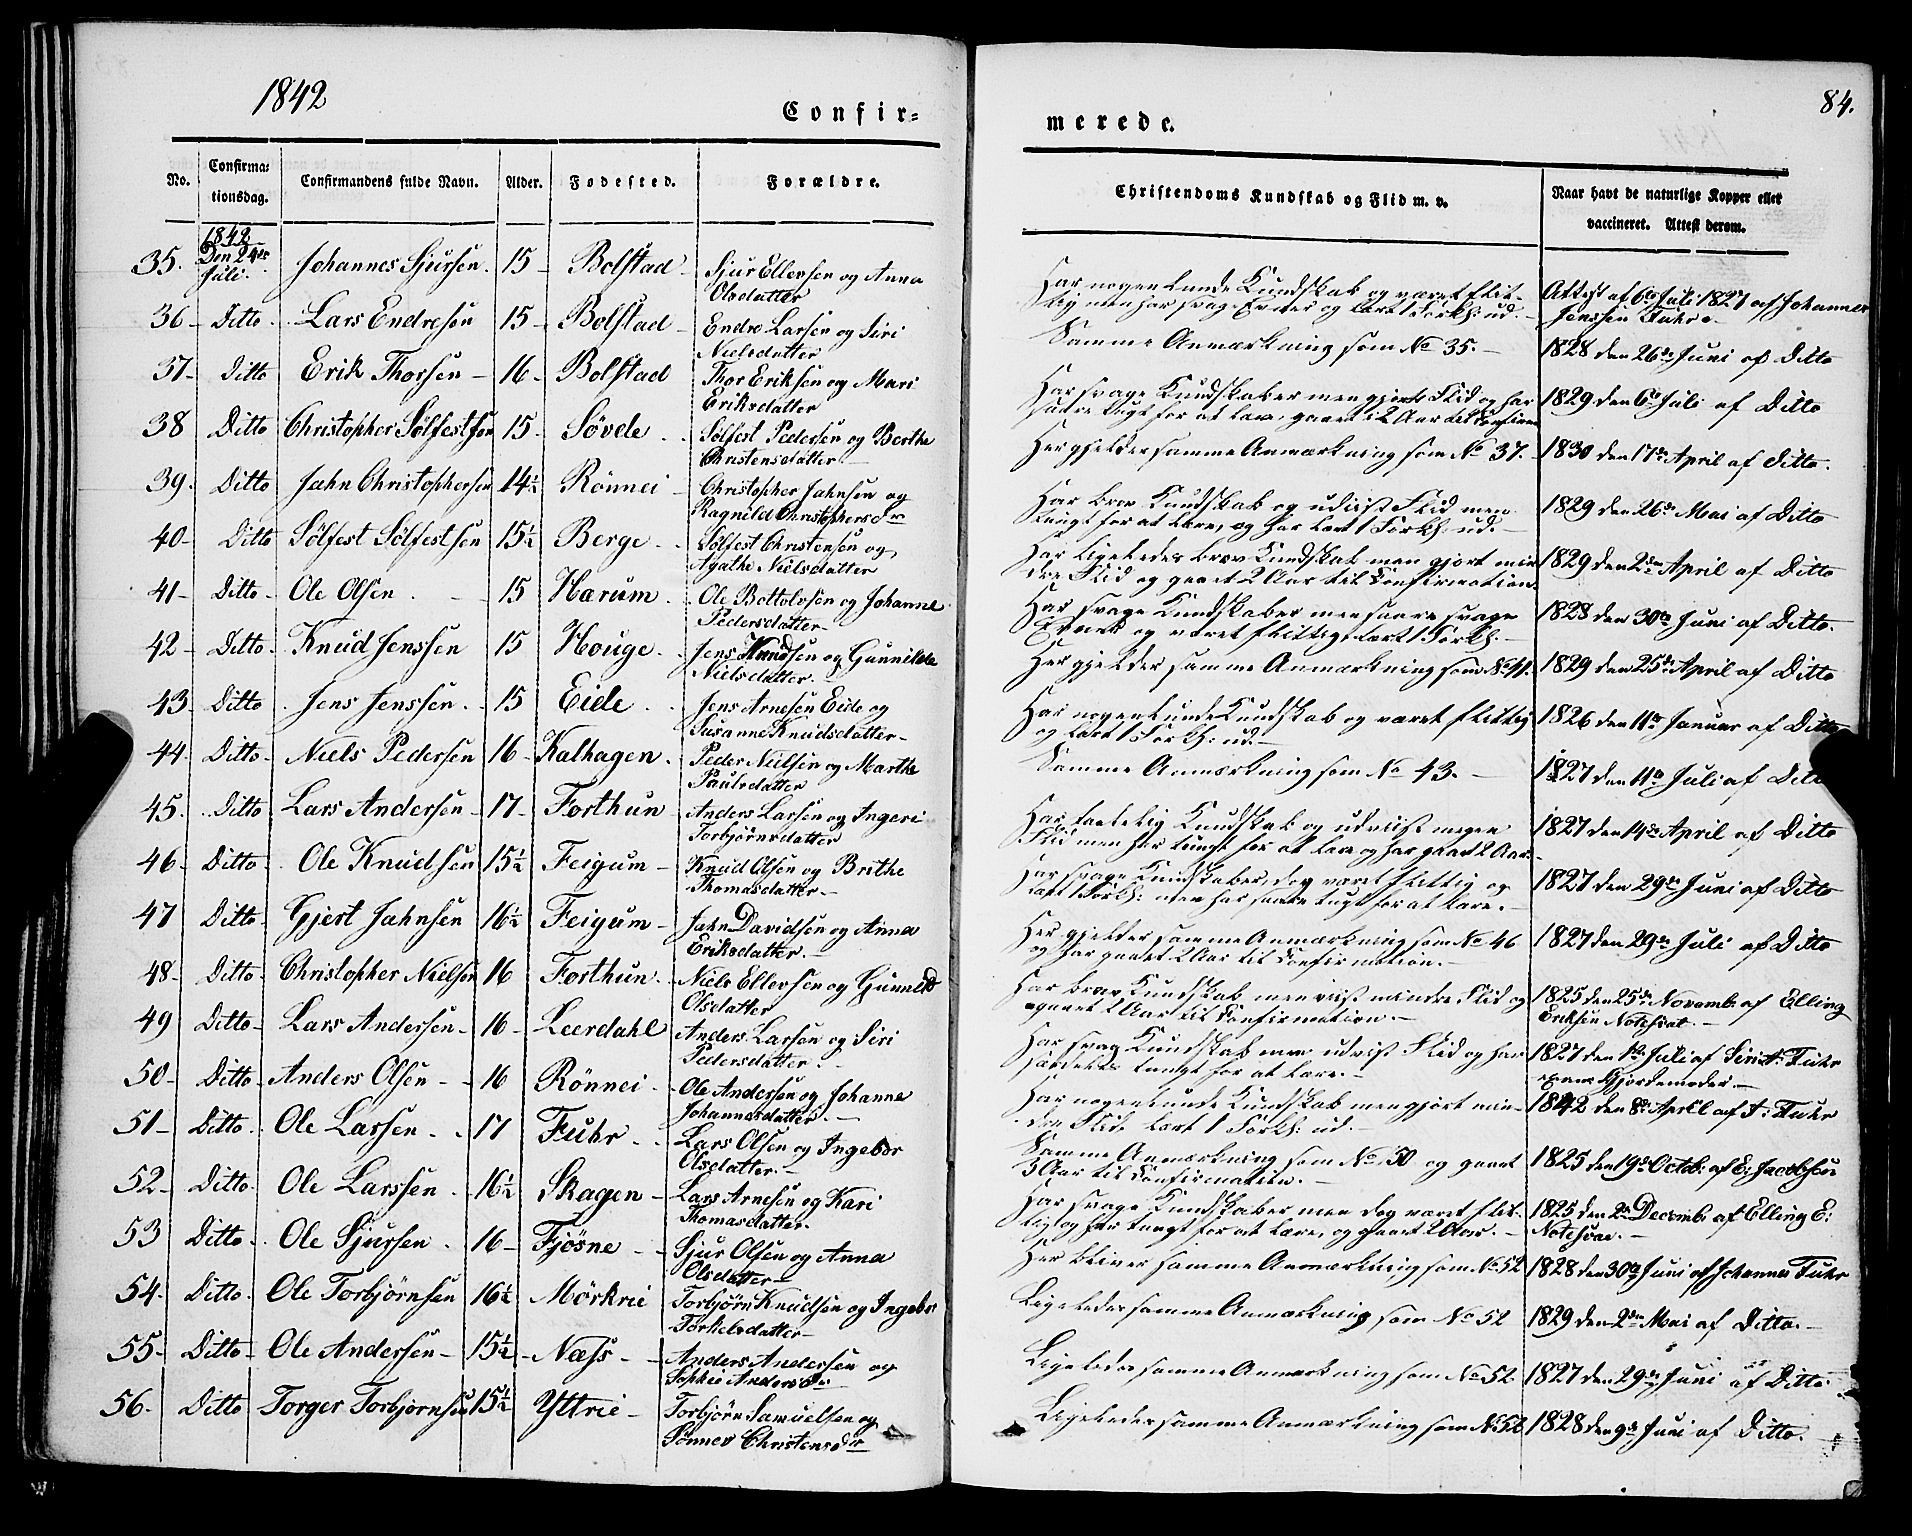 1842
Confir-
No.
Confirma-
tionsdag.
Confirmandens fulde Navn.
Alder.
Fødested.
Forældre.
35. 1842 Den 24de Juli. Johannes Sjursen. 15 - Bolstad - Sjur Ellevsen og Anna
Olsdatter
36 - Ditto. Lars Endresen 15 - Bolstad - Endre Larsen og Siri
Nielsdatter
37 - Ditto Erik Thorsen - 16 - Bolstad Thor Eriksen og Mari
Eriksdatter
38 Ditto Christopher Sølfestsen 15 - Søvde. Sølfest Pedersen og Berthe
Christensdatter. -
39. Ditto Jahn Christophersen 14½ Rönnei - Christopher Jahnsen og
Ragnild Christophersdr
40 - Ditto Sölfest Sölfestsen 15½ Berge - Sölfest Christensen og
Agathe Nielsdatter
41 - Ditto - Ole Olsen. - 15 Harum. Ole Bottolvsen og Johanne
Pedersdatter -
42 - Ditto. Knud Jenssen 15 Houge. Jens Knudsen og Gunnilde
Nielsdatter. -
43 - Ditto Jens Jenssen. 15 Eide. Jens Arnesen Eide og
Susanne Knudsdatter -
44. Ditto - Niels Pedersen 16 - Kalhagen. Peder Nielsen og Marthe
Paulsdatter
45. Ditto - Lars Andersen - 17 - Forthun Anders Larsen og Ingeri
Torbjørnsdatter
46 - Ditto - Ole Knudsen 15½ Feigum - Knud Olsen og Brithe
Thomasdatter -
47 Ditto - Gjert Jahnsen 16½ Feigum - Jahn Davidsen og Anna
Eriksdatter. -
48 - Ditto - Christopher Nielsen 16 Forthun. Niels Ellevsen og Gunnild
Olsdatter
49 Ditto - Lars Andersen - 16 - Leerdahl Anders Larsen og Siri
Pedersdatter. -
50 - Ditto - Anders Olsen - 16 Rönnei - Ole Andersen og Johanne
Johannesdatter. -
51 - Ditto. Ole Larsen. 17 Fuhr. Lars Olsen og Ingebor
Olsdatter. -
52 - Ditto. Ole Larssen. 16½ Skagen - Lars Arnesen og Kari
Thomasdatter.
53 Ditto. Ole Sjursen. 16 - Fjösne - Sjur Olsen og Anna
Olsdatter -
54. Ditto. Ole Torbjörnsen 16½ Mörkrie Torbjörn Knudsen og Ingebor
Torkelsdatter -
55 - Ditto - Ole Andersen - 15½ - Næss - Anders Andersen og
Sophie Andersdr
56. Ditto Torger Torbjørnsen 15½ Yttrie - Torbjørn Samuelsen og
Sønnev Christensdr
merede.
84.
Christendoms Kundskab og Flid m. v.
Naar havt de naturlige Kopper eller
vaccineret. Attest derom.
Har nogenlunde Kundskab og været flit-
tig men har svage Evner og lært 1 Forkl: ud. - Attest af 6te Juli 1827 af Johannes
Jenssen Fuhr
Samme Anmærkning som No 35. - 1828 den 26de Juni af Ditto
Har svage Kundskaber men gjort Flid og har 1829 den 6te Juli af Ditto
tungt for at lære, gaaet i 2 Aar til Confirm
Her gjelder samme Anmærkning som No 37. - 1830 den 17de April af Ditto.
Har brav Kundskab og udviist Flid men 1829 den 26de Mai af Ditto
tungt for at lære, og har lært 1 Forkl: ud. -
Har ligeledes brav Kundskab men gjort min- 1829 den 2den April af Ditto
dre Flid og gaaet 2 Aar til Confirmation.
Har svage Kundskaber men svage 1828 den 30te Juni af Ditto.
og været flittig lært 1 Forkl. -
Her gjelder samme Anmærkning som No 41. 1829 den 25de April af Ditto
Har nogenlunde Kundskab og været flittig 1826 den 11te Januar af Ditto
og lært 1 Forkl: ud. -
Samme Anmærkning som No 43. - 1827 den 11te Juli af Ditto
Har Kundskab og udviist megen 1827 den 14de April af Ditto
Flid men har tungt for at lære og har gaaet 2 Aar.
Har svage Kundskaber, dog været flittig og 1827 den 29de Juni af Ditto
lært 1 Forkl: men har tungt for at lære. -
Her gjelder samme Anmærkning som No 46 1827 den 29de Juli af Ditto
og har gaaet 2 Aar til Confirmation. -
Har brav Kundskab men viist mindre Flid og 1825 den 25de Novemb af Elling
gaaet 2 Aar til Confirmation. - Eriksen Notesvat. -
Har svag Kundskab men udviist Flid og har 1827 den 1te Juli af Siri Fuhr
tungt for at lære. - Gjordemoder. -
Har nogenlunde Kundskab men gjort min- 1842 den 8de April af J: Fuhr
dre Flid lært 1 Forkl: ud. -
Samme Anmærkning som No 50 og gaaet 1825 den 19de Octob: af E: Jacobsen
3 Aar til Confirmation. -
Har svage Kundskaber men dog været flit- 1825 den 2den Decemb af Elling E:
tig og har tungt for at lære, og gaaet 2 Aar. - Notesvat. -
Her bliver samme Anmærkning som No 52 1828 den 30te Juni af Johannes Fuhr
Ligeledes samme Anmærkning som No 52 1829 den 2den Mai af Ditto. -
Ligeledes samme Anmærkning som No 52 1827 den 29de Juni af Ditto
Ligeledes samme Anmærkning som No 52 1828 den 9de Juni af Ditto.